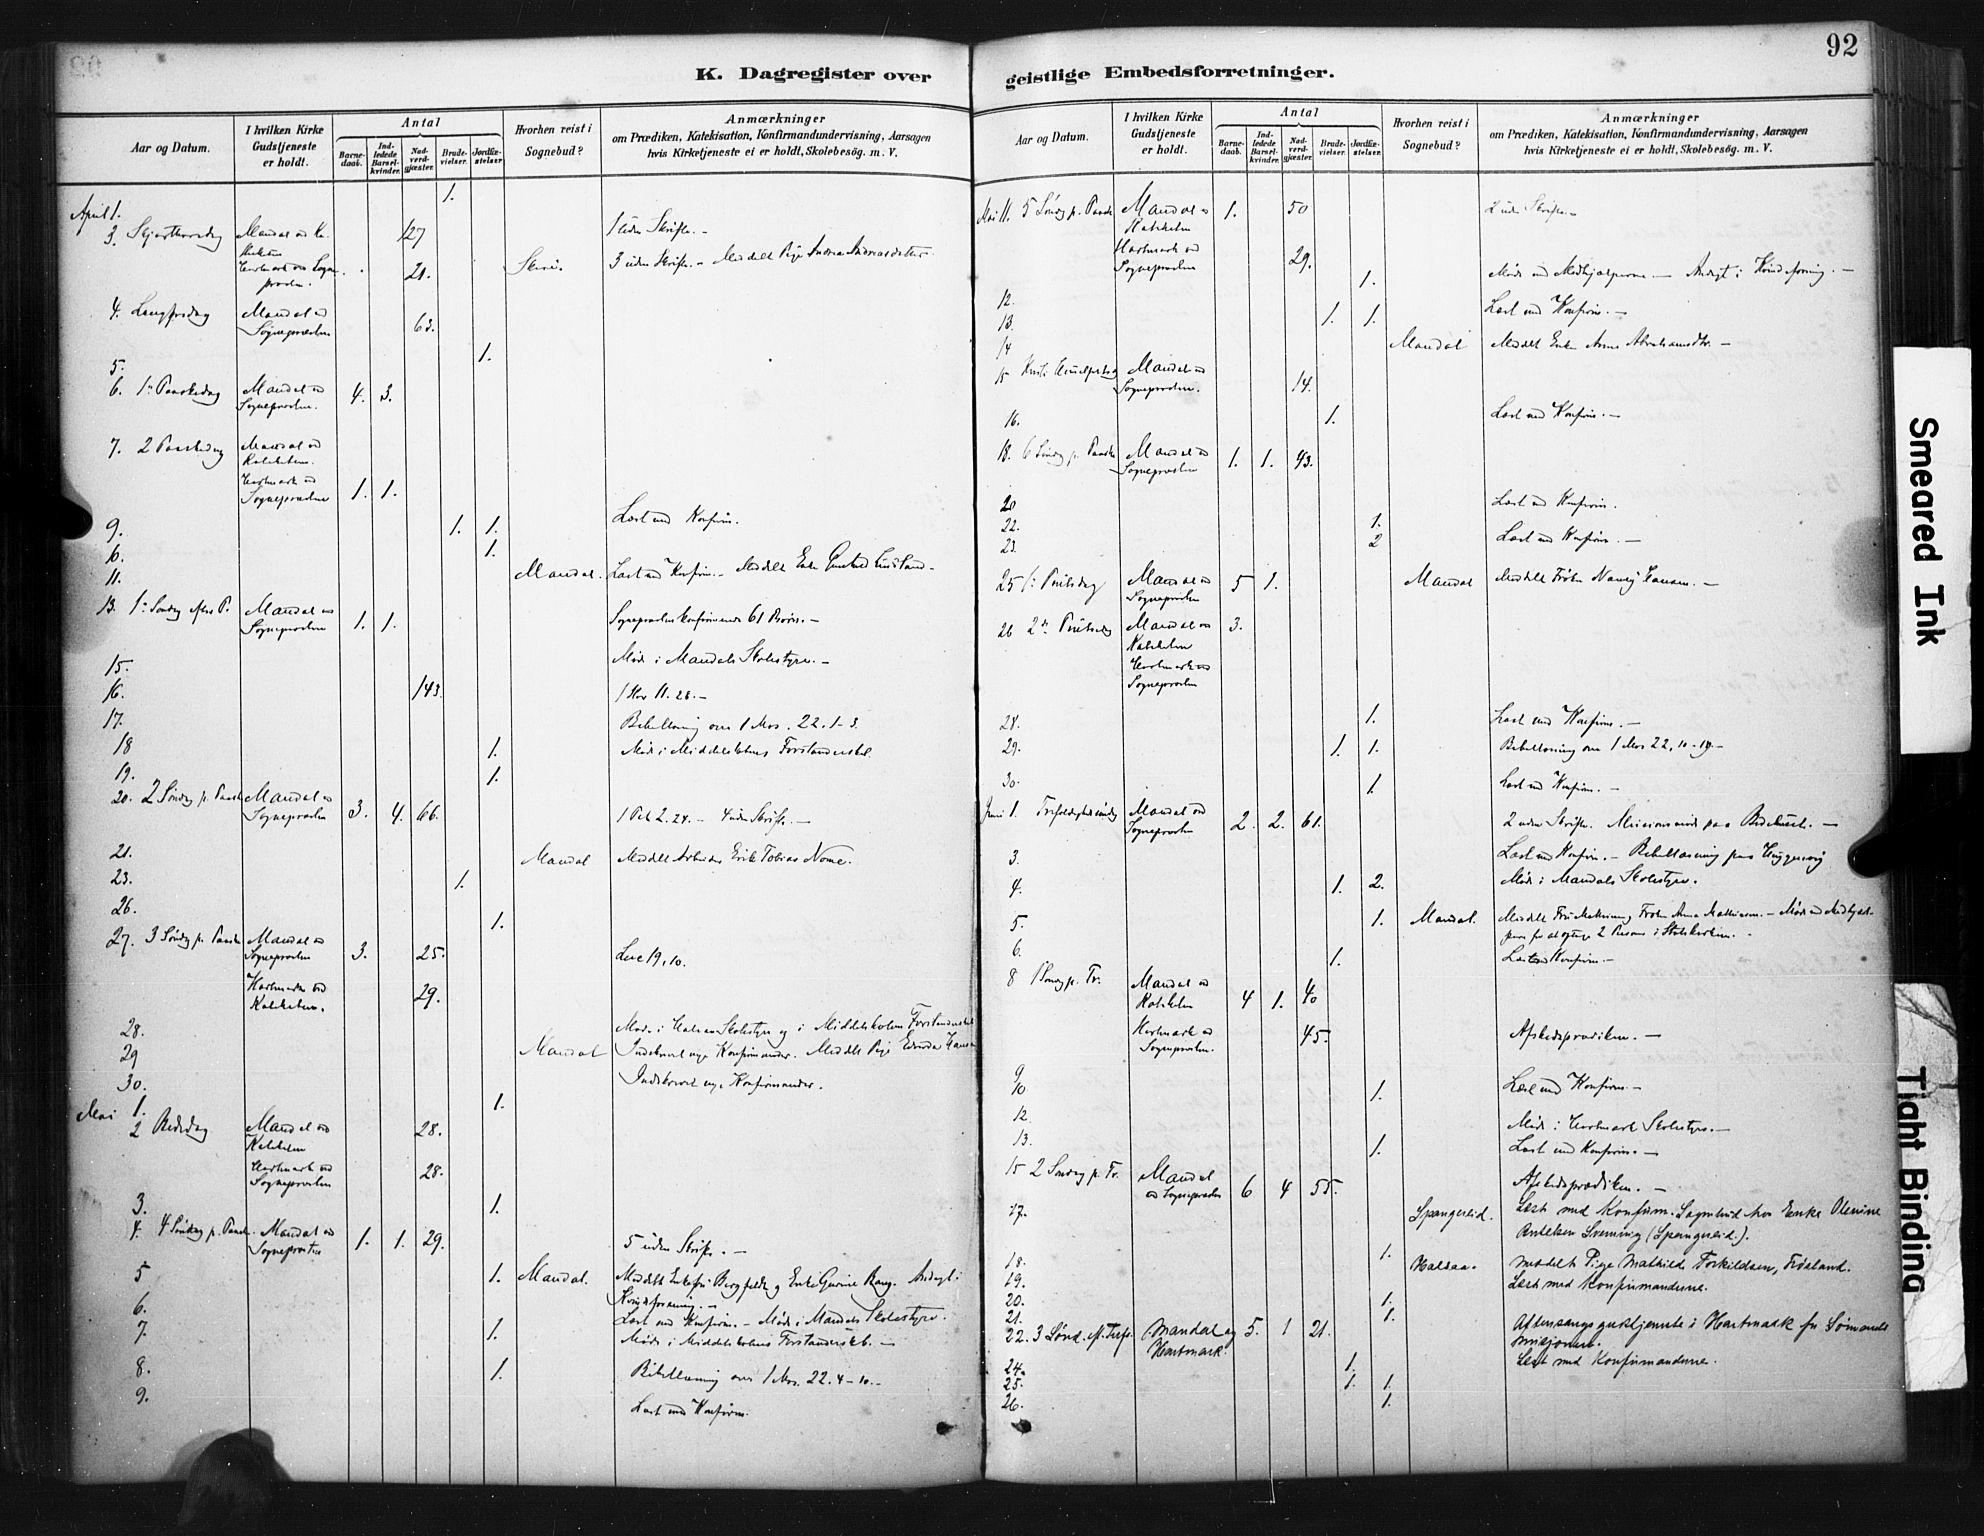 K. Dagregister over
Aar og Datum.
I hvilken Kirke Gudstjeneste er holdt.
Antal
Barnedaab.
Indledede Barselkvinder.
Nadverdgjæster.
Brudevielser.
Jordfæstelser.
Hvorhen reist i Sognebud?
Anmærkninger
om Prædiken, Katekisation, Konfirmandundervisning, Aarsagen
hvis Kirketjeneste ei er holdt, Skolebesøg. m. V.
April 1. 1.
3. Skjærthorsdag Mandal 127 1 uden Skrifte. -
21. 3 uden Skrifte. - Meddelt Pige
4. Langfredag Mandal ved Sognepræsten 63.
5. 1.
6. 1ste Paaskedag Mandal ved Sognepræsten. 4. 3.
7. 2 Paaskedag Mandal ved Katekheten.
Hartmark ved Sognepræsten 1. 1.
9. 1. 1. Læst med Konfirm.
10. 1.
11. Mandal. Læst med Konfirm. - Meddelt Enke
13. 1ste Søndag efter P. Mandal ved Sognepræsten 1. 1. Sognepræsten konfirmerede 61 Børn. -
15. Møde i Mandals Skolestyre. -
16. 143. 1 Kor 11. 28. -
17. Bibellæsning over 1 Mos. 22. 1-3.
18 1. Møde i Middelskolens Forstandersk.
19. 1.
20. 2 Søndag p. Paaske Mandal ved Sognepræsten 3. 4. 66. 1 Pet 2. 24. - 4 uden Skrifte. -
21. Mandal Meddelt Arbeider Erik Tobias Nome.
23. 1.
26. 1.
27. 3 Søndag p. Paaske Mandal ved Sognepræsten 3. 25. Luc 19, 10.
Hartmark ved Katekheten. 29.
28. Møde i Skolestyre og i Middelskolens Forstandersk
29 Mandal Indskrevet nye Konfirmander. Meddelt Pige
30. Indskrevet nye Konfirmander.
Mai 1. 1.
2 Bededag Mandal ved Katekheten 28.
Hartmark ved Sognepræsten 28.
3. 1.
4. 4 Søndag p. Paaske. Mandal ved Sognepræsten 1. 1. 29. 5 uden Skrifte. -
5 1. Mandal. Meddelt Enkefru og Enke Andagt i
Kvindeforening. -
6. Læst med Konfirm. - Møde i Mandals Skolestyre.
7. 1. Møde i Middelskolens Forstandersk. -
8. 1. Bibellæsning over 1 Mos. 22. 4-10. -
9. Læst med Konfirm.
92
geistlige Embedsforretninger.
Aar og Datum.
I hvilken Kirke Gudstjeneste er holdt.
Antal
Barnedaab.
Indledede Barselkvinder.
Nadverdgjæster.
Brudevielser.
Jordfæstelser.
Hvorhen reist i Sognebud?
Anmærkninger
om Prædiken, Katekisation, Konfirmandundervisning, Aarsagen
hvis Kirketjeneste ei er holdt, Skolebesøg. m. V.
Mai 11. 5 Søndag p. Paaske Mandal ved Katekheten 1. 50 2 uden Skrifte. -
Hartmark ved Sognepræsten 29.
1. Møde med Medhjælperne - Andagt i Kvindeforening. -
12. Læst med Konfirm. -
13. 1. 1.
14 Mandal Meddelt Enke Anne Abrahamsdtr. -
15 Kristi Himmelfartsdag Mandal ved Sognepræsten. 14.
16. 1. Læst med Konfirm. -
18. 6 Søndag p. Paaske Mandal ved Sognepræsten 1. 1. 43.
20 Læst med Konfirm.
22. 1.
23. 2 Læst med Konfirm. -
25 1ste Pintsedag Mandal ved Sognepræsten 5 1. Mandal Meddelt Frøken Nancy Hansen. -
26 2den Pintsedag Mandal ved Katekheten 3.
Hartmark ved Sognepræsten
28. 1. Læst med Konfirm. -
29. 1. 1. Bibellæsning over 1 Mos 22, 10-19. -
30. 1. Læst med Konfirm. -
Juni 1. Trefoldighedssøndag Mandal ved Sognepræsten 2. 2. 61. 2 uden Skrifte. Missionsmøde paa Bedehuset. -
3. Læst med Konfirm. - Bibellæsning paa
4. 1. 2. Møde i Mandals Skolestyre.
5. 1. Mandal. Meddelt Fru Frøken Anna Mathiesen. - Møde med Medhjælperne
for at optage 2 Personer i Statskirken. -
6. 1. Læst med Konfirm. -
8 1 Søndag p. Tr. Mandal ved Katekheten 4 1. 40
Hartmark ved Sognepræsten. 45. Afskedsprædiken. -
9
10 1. Læst med Konfirm. -
12. Møde i Hartmark Skolestyre. -
13. 1. Læst med Konfirm. -
15 2 Søndag p. Tr. Mandal ved Sognepræsten 6 4 55. Afskedsprædiken. -
17. Spangereid. Læst med Konfirm. Sognebud hos Enke Olevine
Svenning (Spangereid).
18. 1. Halsaa. Meddelt Pige Mathild Torkildsen, Frøsland.
19. Læst med Konfirmanderne.
20. 1.
21. 1.
22. 3 Sønd. e. Trefo. Mandal og Hartmark. 5. 1 21. Aftensangsgudstjeneste i Hartmark for Sømands
misjonen.
24. 1. Læst med Konfirmanderne.
25. 1. 1.
26. 1.
Smeared Ink
Tight Binding